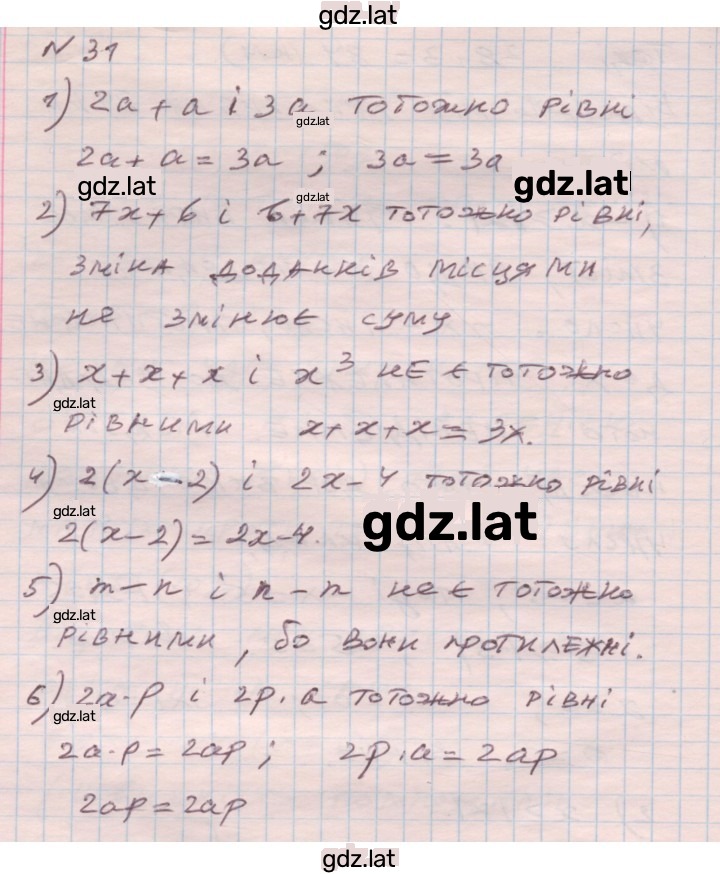 gdz.lat
N 31
1) 2a + a і 3a тотожно рівні
gdz.lat
2a + a = 3a ; 3a = 3a
gdz.lat
gdz.lat
gdz.lat
2) 7x + 6 і 6 + 7x тотожно рівні,
зміна доданків місцями
не змінює суму
3) x + x + x і x³ не є тотожно
gdz.lat
рівними x + x + x = 3x.
4) 2(x - 2) і 2x - 4 тотожно рівні
gdz.lat
gdz.lat
2(x - 2) = 2x - 4.
5) m - n і n - m не є тотожно
gdz.lat
рівними, бо вони протилежні.
6) 2a · p і 2p · a тотожно рівні
gdz.lat
2a · p = 2ap ; 2p · a = 2ap
2ap = 2ap
gdz.lat